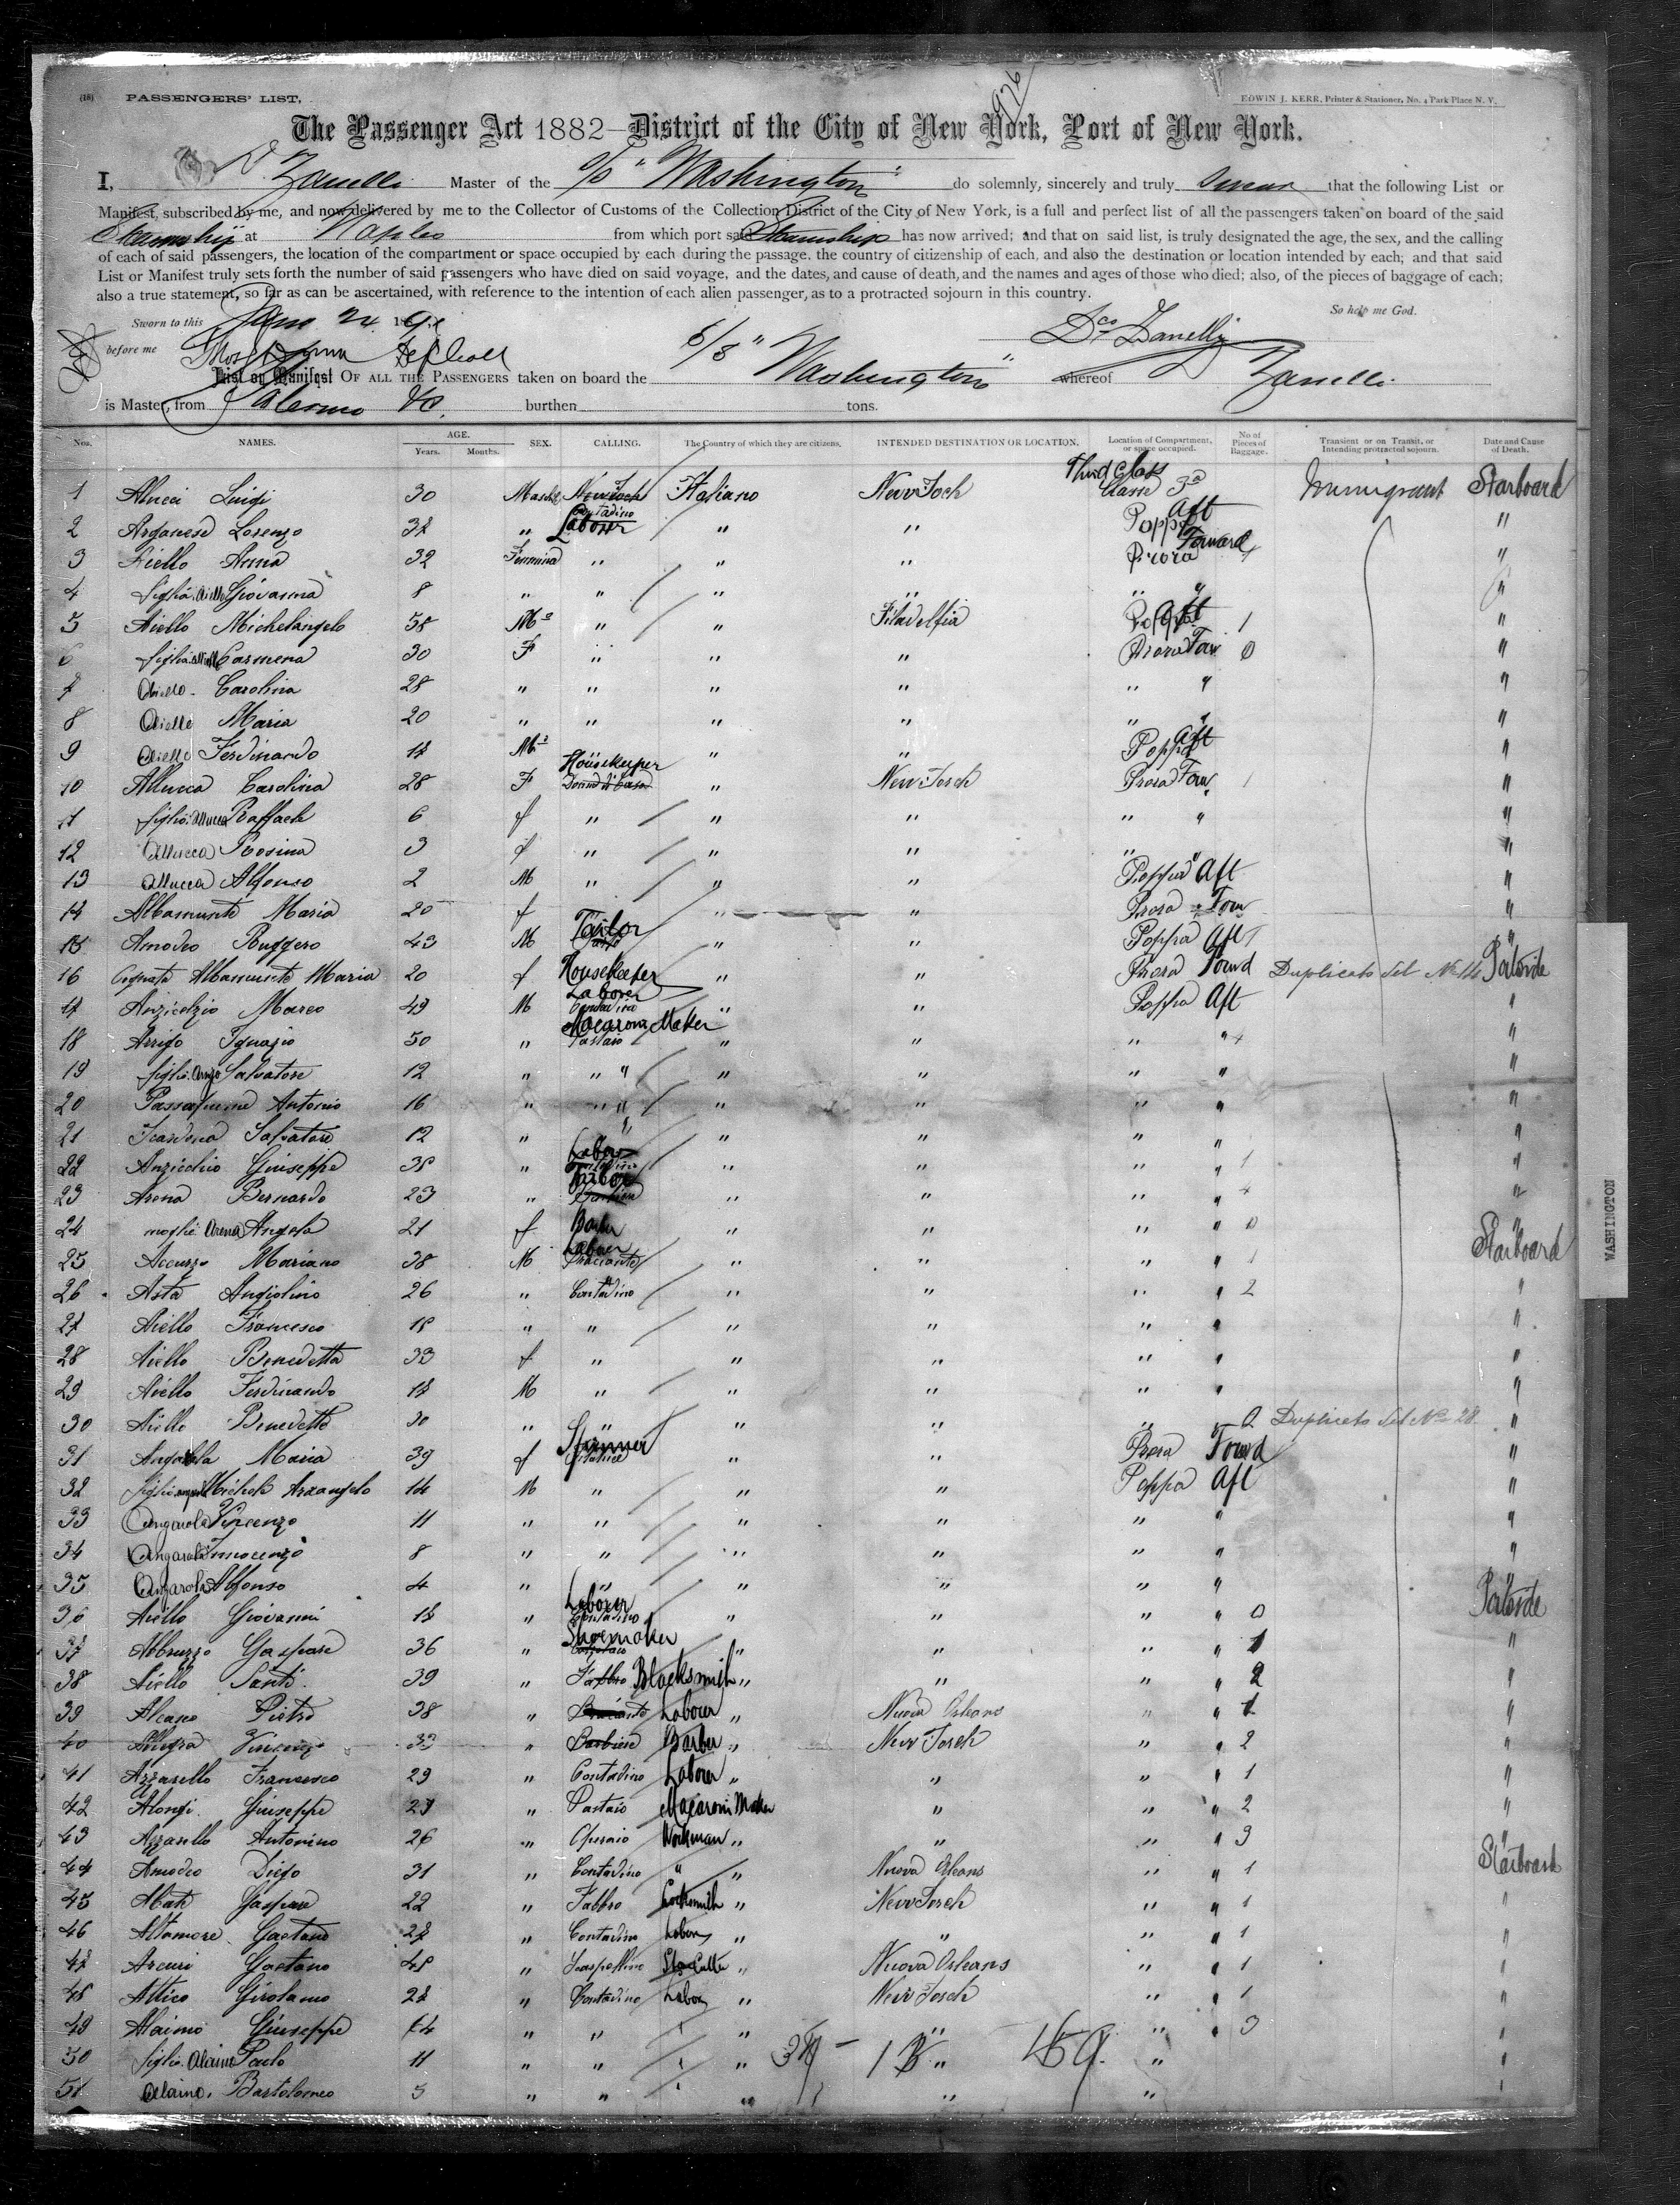 (18) PASSENGERS' LIST.
EDWIN J. KERR, Printer & Stationer, No. 4 Park Place N. Y.
The Passenger Act 1882—District of the City of New York, Port of New York.
I, D Zanelli Master of the S/S "Washington" do solemnly, sincerely and truly swear that the following List or
Manifest, subscribed by me, and now delivered by me to the Collector of Customs of the Collection District of the City of New York, is a full and perfect list of all the passengers taken on board of the said
Steamship at Naples from which port said Steamship has now arrived; and that on said list, is truly designated the age, the sex, and the calling
of each of said passengers, the location of the compartment or space occupied by each during the passage, the country of citizenship of each, and also the destination or location intended by each; and that said
List or Manifest truly sets forth the number of said passengers who have died on said voyage, and the dates, and cause of death, and the names and ages of those who died; also, of the pieces of baggage of each;
also a true statement, so far as can be ascertained, with reference to the intention of each alien passenger, as to a protracted sojourn in this country.
So help me God.
Sworn to this 189
before me
Dco Zanelli
List or Manifest OF ALL THE PASSENGERS taken on board the S/S "Washington" whereof Zanelli
is Master, from Palermo &c. burthen tons.
Nos. NAMES. AGE. Years. Months. SEX. CALLING. The Country of which they are citizens. INTENDED DESTINATION OR LOCATION. Location of Compartment, or space occupied. No of Pieces of Baggage. Transient or on Transit, or Intending protracted sojourn. Date and Cause of Death.
Third Class
1 Alucci Luigi 30 Italiano New Jorch Classe 3a Immigrant Starboard
2 Arganese Lorenzo Contadino Laborer " " Poppa Aft "
3 Aiello Anna 32 Femmina " " " Prora Forward "
4 figlia Aiello Giovanna 8 " " " " " " "
5 Aiello Michelangelo 58 M " " Filadelfia Poppa Aft 1 "
6 figlia Aiello Carmena 30 F " " " Prora Forw 0 "
7 Aiello Carolina 28 " " " " " " "
8 Aiello Maria 20 " " " " " " "
9 Aiello Ferdinando M " " Poppa Aft "
10 Allucca Carolina 28 F Housekeeper Donna di Casa " New Jorch Prora Forw 1 "
11 figlia Allucca Raffaela 6 f " " " " " "
12 Allucca Rosina 3 f " " " " " "
13 Allucca Alfonso 2 M " " " Poppa Aft "
14 Albamunte Maria 20 f " " Prora Forw "
15 Amodeo Ruggero 43 M Tailor Sarto " " Poppa Aft 1 "
16 Cognata Albamunte Maria 20 f Housekeeper " " Prora Forwd Duplicate del No 14 Portside
17 Marco 43 M Laborer Contadino " " Poppa Aft "
18 Arrigo Ignazio 50 " Macaroni Maker Pastaio " " " " 4 "
19 figlio Arrigo Salvatore 12 " " " " " " " "
20 Passafiume Antonio 16 " " " " " " " "
21 Scardina Salvatore 12 " " " " " " "
22 Anzicchio Giuseppe 38 " Laborer Contadino " " " " 1 "
23 Arena Bernardo 23 " Barber " " " " "
24 moglie Arena Angela 21 f Barber " " " " 0 "
25 Accurzo Mariano 38 M Laborer Bracciante " " " " 1 Starboard
26 Asta Angiolino 26 " Contadino " " " " 2 "
27 Aiello Francesco 18 " " " " " " "
28 Aiello Benedetta 33 f " " " " " "
29 Aiello Ferdinando M " " " " " "
30 Aiello Benedetta 30 " " " " " " 0 Duplicate del No 28 "
31 Angarola Maria 39 f Spinner Filatrice " " Prora Forwd "
32 figlio Michele Arcangelo 14 M " " " Poppa Aft "
33 Angarola Vincenzo 11 " " " " " " "
34 Angarola Innocenzo 8 " " " " " " "
35 Angarola Alfonso 4 " " " " " " "
36 Aiello Giovanni " Laborer Contadino " " " " 0 Portside
37 Abbruzzo Gaspare 36 " Shoemaker Calzolaio " " " " 1 "
38 Aiello Santi 39 " Fabbro Blacksmith " " " " 2 "
39 Alcano Pietro 38 " Bracciante Laborer " Nuova Orleans " " 1 "
40 Allegra Vincenzo 33 " Barbiere Barber " New Jorch " " 2 "
41 Azzarello Francesco 29 " Contadino Laborer " " " " 1 "
42 Alongi Giuseppe 29 " Pastaio Macaroni Maker " " " 2 "
43 Azzarello Antonino 26 " Operaio Workman " " " " 3 "
44 Amodeo Diego 31 " Contadino " " Nuova Orleans " " 1 Starboard
45 Abate Gaspare 22 " Fabbro Locksmith " New Jorch " " 1 "
46 Altamore Gaetano " Contadino Labour " " " " 1 "
47 Arcuri Gaetano 48 " Scarpellino Stone Cutter " Nuova Orleans " " 1 "
48 Attico Girolamo " Contadino Labour " New Jorch " " 1 "
49 Alaimo Giuseppe " " " " " " 3 "
50 figlio Alaimo Paolo 11 " " " " " "
51 Alaimo Bartolomeo 5 " " " " " "
WASHINGTON